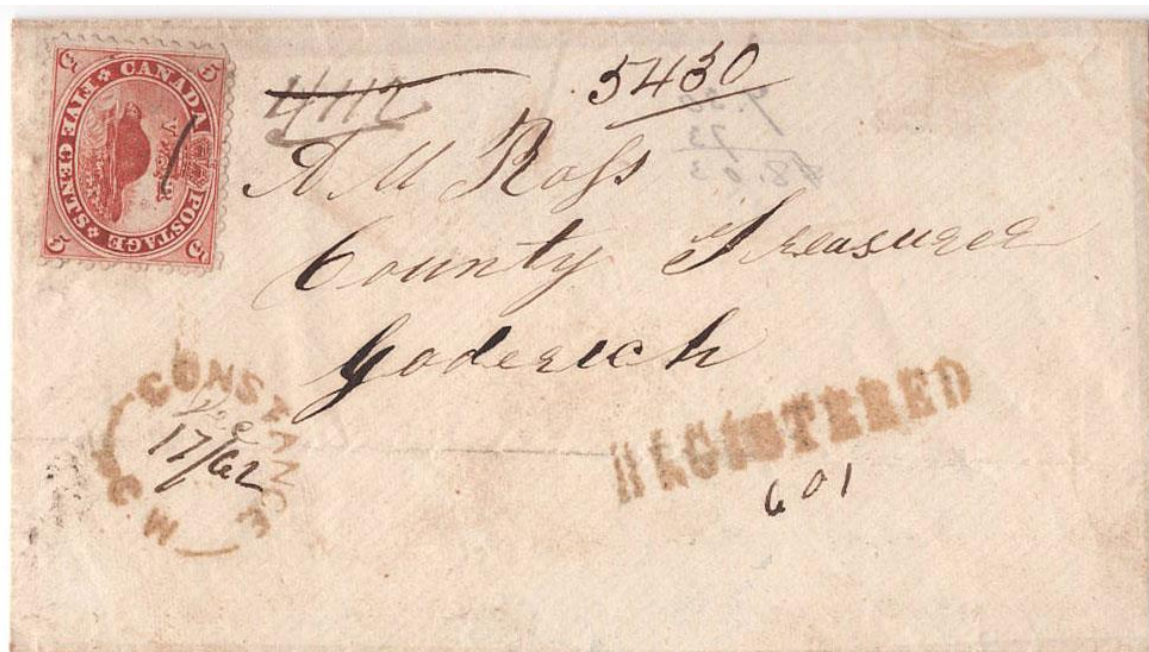 5 5
CANADA POSTAGE
FIVE CENTS
5 5
4112
5430
7.30
73
$8.03
A M Ross
County Treasurer
Goderich
CONSTANCE
Dec
17/62
C. W
REGISTERED
601